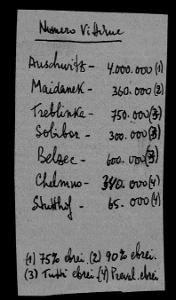 Numero Vittime
Auschwitz - 4.000.000 (1)
Maidanek - 360.000 (2)
Treblinka - 750.000 (3)
Sobibor - 300.000 (3)
Belzec - 600.000 (3)
Chelmno - 340.000 (4)
Stutthof - 65.000 (4)
(1) 75% ebrei. (2) 90% ebrei.
(3) Tutti ebrei (4) Preval. ebrei